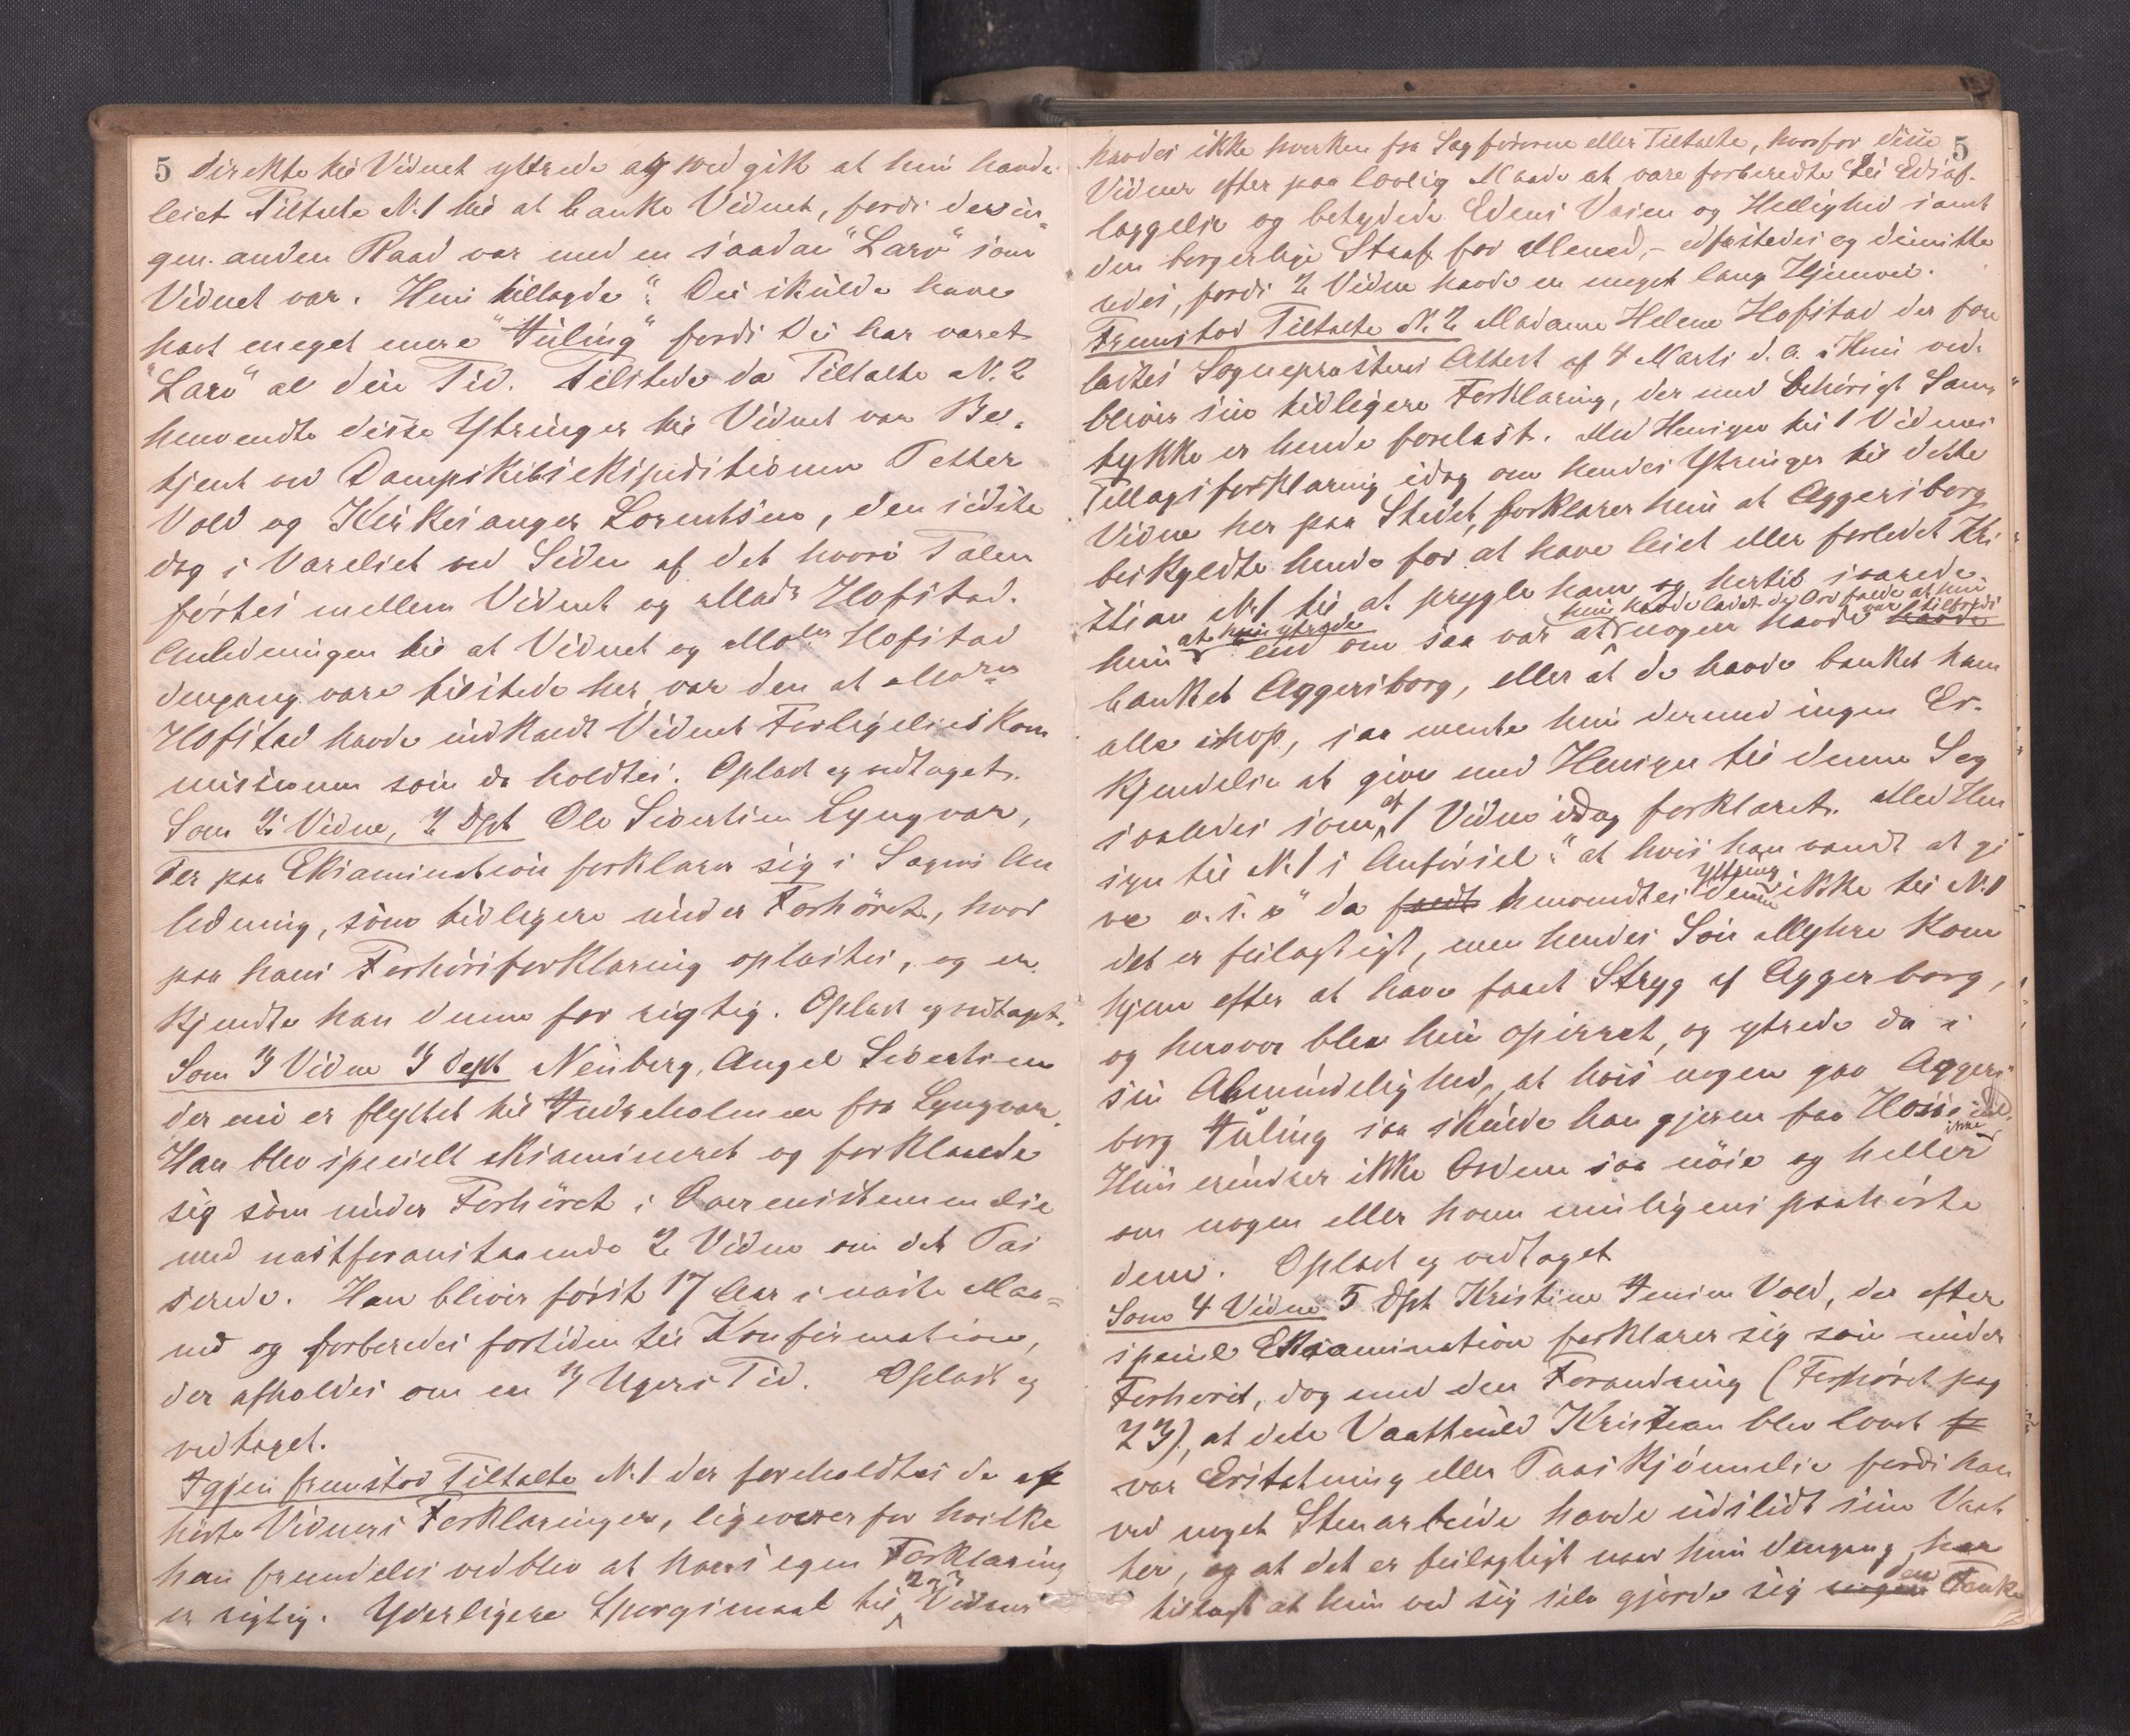 5 direkte til Vidnet yttrede og vedgik at hun havde
leiet Tiltalte N. 1 til at banke Vidnet, fordi der in
gen anden Raad var med en saadan "Larv" som
Vidnet var. Hun tillagde: "Du skulde have
havt meget mere "Juling" fordi Du har været
"Larv" al din Tid. Tilstede da Tiltalte N. 2
henvendte disse Ytringer til Vidnet var Be-
tjent ved Dampskibsekspeditionen Petter
Vold og Kirkesanger Lorentsen, den sidste
dog i Værelset ved Siden af det hvori Talen
førtes mellem Vidnet og Mad. Hofstad.
Anledningen til at Vidnet og Mad. Hofstad
dengang vare tilstede her, var den at Mad.
Hofstad havde indkaldt Vidnet Forligelseskom
missionen som da holdtes. Oplæst og vedtaget.
Som 2 Vidne, 2 Dpt Ole Sivertsen Lyngvær,
der paa Eksamination forklarer sig i Sagens An
ledning, som tidligere under Forhöret, hvor
paa hans Forhörsforklaring oplæstes, og er
kjendte han denne for rigtig. Oplæst og vedtaget.
Som 3 Vidne 3 Dept Neuberg, Angel Sivertsen
der nu er flyttet til Indreholmen fra Lyngvær.
Han blev specielt eksamineret og forklarede
sig som under Forhöret i Overensstemmelse
med næstforanstaaende 2 Vidne om det Pas
serede. Han bliver först 17 Aar i næste Maa-
ned og forberedes fortiden til Konfirmation,
der afholdes om en 3 Ugers Tid. Oplæst og
vedtaget.
Igjen fremstod Tiltalte N. 1 der foreholdtes de af
hörte Vidners Forklaringer, ligeoverfor hvilke
han fremdeles vedblev at hans egen Forklaring
er rigtig. Yderligere Spørgsmaal til 2 og 3 Vidner
5
havdes ikke hverken fra Sagförerne eller Tiltalte, hvorfor disse
Vidner efter paa lovlig Maade at være forberedte til Edsaf-
læggelse og betydede Edens Væsen og Hellighed samt
den borgerlige Straf for Mened, - edfæstedes og dimitte
redes, fordi 2 Vidne havde en meget lang Hjemvei.
Fremstod Tiltalte N. 2 Madame Helene Hofstad der fore
lagdes Sogneprestens Attest af 4 Marts d. A. Hun ved-
bliver sin tidligere Forklaring, der med behörigt Sam
tykke er hende forelæst. Med Hensyn til 1 Vidnes
Tillægsforklaring idag om hendes Ytringer til dette
Vidne her paa Stedet, forklarer hun at Aggersborg
beskyldte hende for at have leiet eller forledet Kri
stian N. 1 til at prygle ham og hertil svarede
hun at hun ytrede end om saa var at hun havde ladet de Ord falde at hun var tilfreds nogen havde havde
banket Aggersborg, eller at de havde banket ham
alle ihop, saa mente hun dermed ingen Er-
kjendelse at give med Hensyn til denne Sag
saaledes som af 1 Vidne idag forklaret. Med Hen
syn til N. 1 s Anförsel: "at hvis han vandt at gi
ve o.s.v" da fordt henvendtes denne Yttring ikke til N. 1
det er feilagtigt, men hendes Sön Myhre kom
hjem efter at have faaet Stryg af Aggerborg,
og herover blev hun opirret, og ytrede da i
sin Almindelighed, at hvis nogen gav Aggers
borg Juling saa skulde han gjerne faa
Hun erindrer ikke Ordene saa nöie og heller ikke
om nogen eller hvem muligens paahörte
dem. Oplæst og vedtaget
Som 4 Vidne 5 Dpt Kristine Jensen Vold, der efter
speciel Eksamination forklarer sig som under
Forhöret, dog med den Forandring (Forhöret pag
23), at dette Kristian blev lovet fo
var Erstatning eller Paaskjönnelse fordi han
ved noget Stenarbeide havde udslidt sine Vaat
ter, og at det er feilagtigt naar hun dengang har
tillagt at hun ved sig selv gjorde sig ingen den Tanke